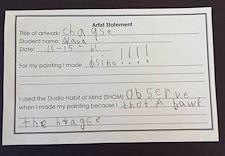 Artist Statement
Title of artwork: chagse
Student name: Nava
Date: 11-15-
For my painting I made !!!!
I used the Studio Habit of Mind (SHOM) observe
when I made my painting because I thot A bawt
the hagse